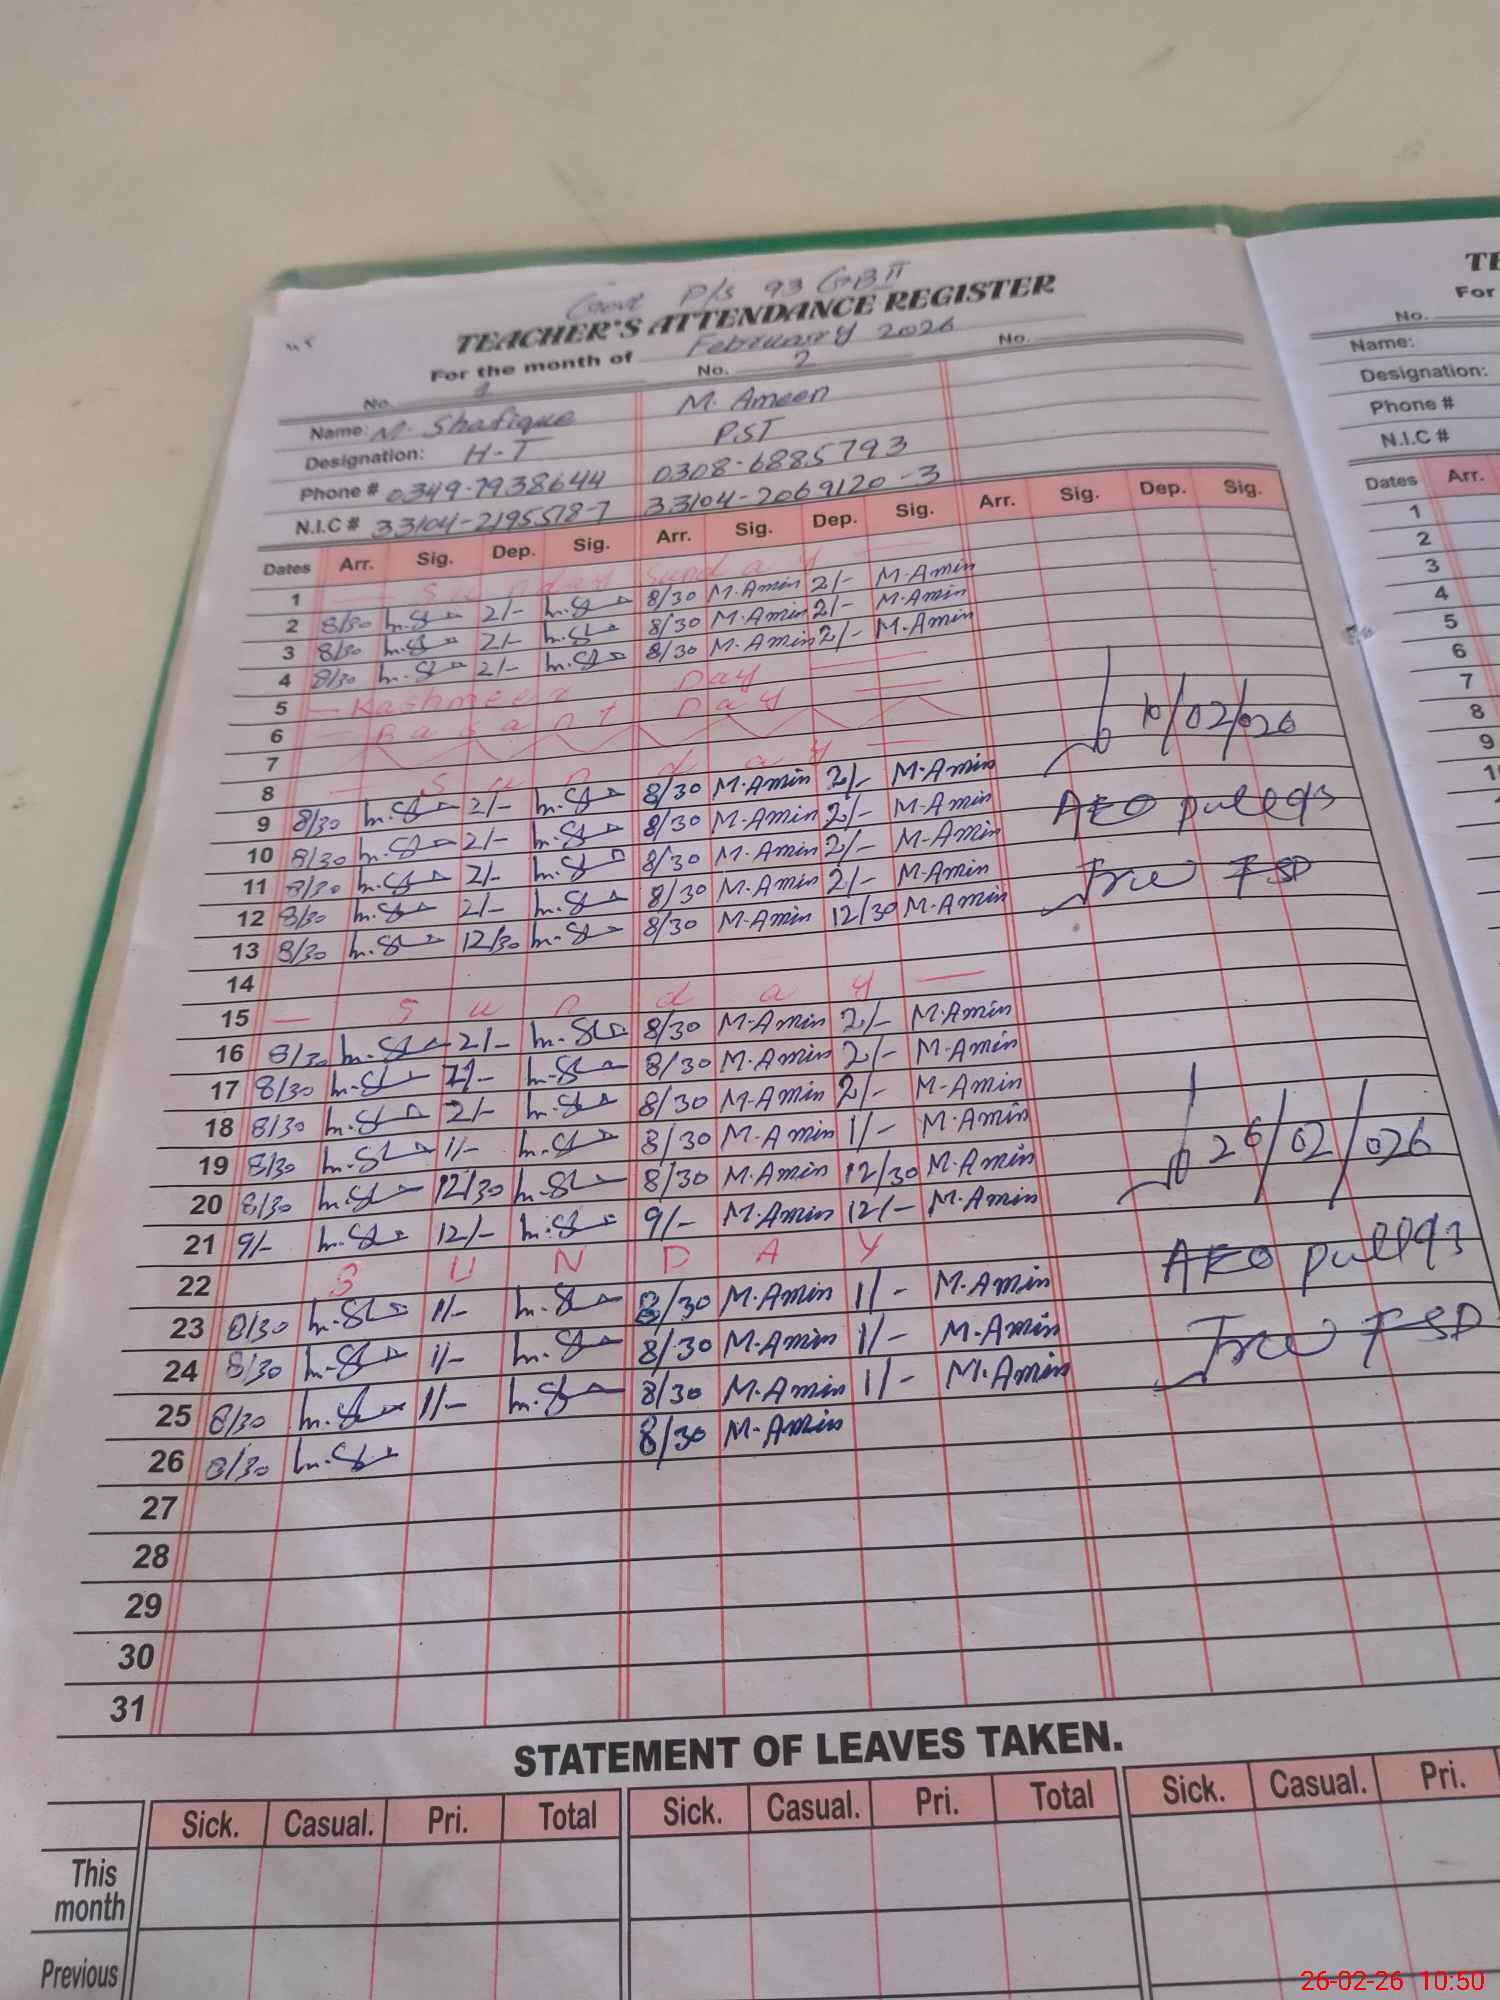 Govt P/s 93 GB II
TEACHER'S ATTENDANCE REGISTER
For the month of February 2026
No. 1 No. 2 No.
Name: M. Shafique M. Ameen
Designation: H-T PST
Phone # 0349-7938644 0308-6885793
N.I.C # 33104-2195578-7 33104-2069120-3
Dates Arr. Sig. Dep. Sig. Arr. Sig. Dep. Sig. Arr. Sig. Dep. Sig.
1 Sunday Sunday
2 8/30 2/- 8/30 M.Amin 2/- M.Amin
3 8/30 2/- 8/30 M.Amin 2/- M.Amin
4 8/30 2/- 8/30 M.Amin 2/- M.Amin
5 Kashmeer Day
6 Basant Day
7
8 Sunday
9 8/30 2/- 8/30 M.Amin 2/- M.Amin
10 8/30 2/- 8/30 M.Amin 2/- M.Amin
11 8/30 2/- 8/30 M.Amin 2/- M.Amin
12 8/30 2/- 8/30 M.Amin 2/- M.Amin
13 8/30 12/30 8/30 M.Amin 12/30 M.Amin
10/02/026
AEO pull 93
FSD
14
15 Sunday
16 8/30 2/- 8/30 M.Amin 2/- M.Amin
17 8/30 2/- 8/30 M.Amin 2/- M.Amin
18 8/30 2/- 8/30 M.Amin 2/- M.Amin
19 8/30 1/- 8/30 M.Amin 1/- M.Amin
20 8/30 12/30 8/30 M.Amin 12/30 M.Amin
21 9/- 12/- 9/- M.Amin 12/- M.Amin
22 SUNDAY
23 8/30 1/- 8/30 M.Amin 1/- M.Amin
24 8/30 1/- 8/30 M.Amin 1/- M.Amin
25 8/30 1/- 8/30 M.Amin 1/- M.Amin
26 8/30 8/30 M.Amin
26/02/026
AEO pull 93
FSD
27
28
29
30
31
STATEMENT OF LEAVES TAKEN.
Sick. Casual. Pri. Total Sick. Casual. Pri. Total Sick. Casual. Pri.
This month
Previous
For
No.
Name:
Designation:
Phone #
N.I.C #
Dates Arr.
1
2
3
4
5
6
7
8
9
26-02-26 10:50